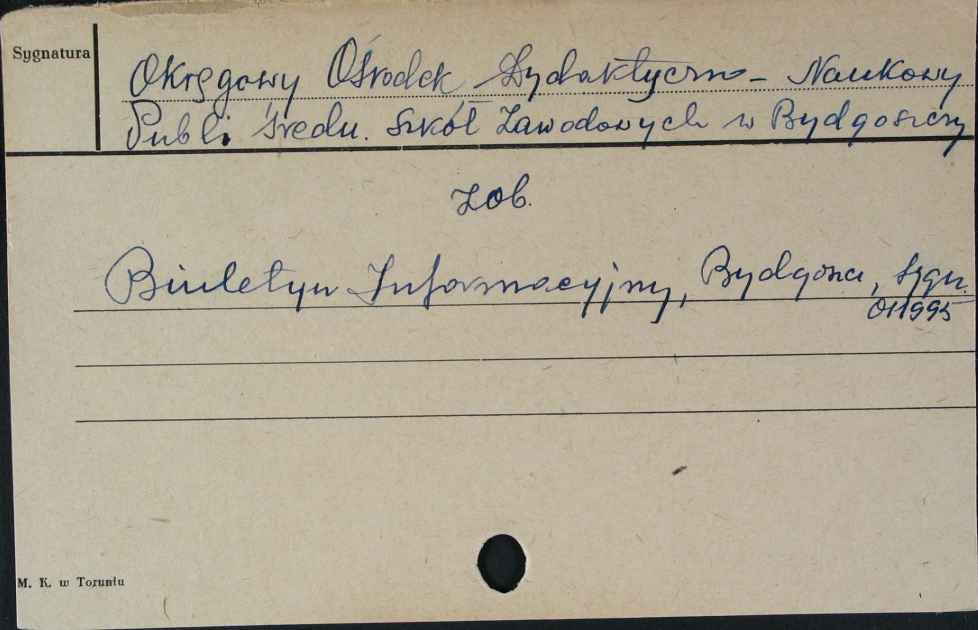 Sygnatura
Okręgowy Ośrodek Dydaktyczno - Naukowy
Publ. Średn. Szkół Zawodowych w Bydgoszczy
Zob.
Biuletyn Informacyjny, Bydgoszcz, Sygn.
011995
M. K. w Toruniu